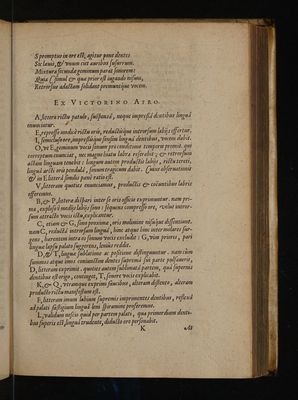 S promptus in ore est, agitur pone dentes
Sic lenis, & vnum ciet auribus susurrum.
Mixtura secunda geminum parat sonorem:
Quia C simul & quæ prior est iugando nisum,
Retrorsus adactam solidant premuntque vocem.
EX VICTORINO AFRO.
A, littera rictu patulo, suspensa, neque impressa dentibus lingua
enuntiatur.
E, represso modice rictu oris, reductisque introrsum labijs effertur.
I, semicluso ore, impressisque sensim lingua dentibus, vocem dabit.
O, vt E, geminum vocis sonum pro conditione temporis promit. qui
correptum enuntiat, nec magno hiatu labra reserabit, & retrorsum
actam linguam tenebit: longum autem productis labijs, rictu tereti,
lingua arcti oris pendula, sonum tragicum dabit. Cuius observationis
& in E littera similis pæne ratio est.
V, litteram quoties enuntiamus, productis & coeuntibus labris
efferemus.
B, & P, littera dispari inter se oris officio exprimuntur. nam pri-
ma, exploso è medijs labijs sono: sequens compresso ore, velut intror-
sum attracto vocis ictu, explicantur.
C, etiam & G, sono proxima, oris molimine nisuque dissentiunt.
nam C, reducta introrsum lingua, hinc atque hinc molares vr-
gens, hærentem intra os sonum vocis excludit: G, vim prioris, pari
linguæ habitu palato suggerens, lenius reddit.
D, & T, linguæ sublatione ac positione distinguuntur. nam cum
summos atque imos coniunctim dentes suprema sui parte pulsauerit,
D, litteram exprimit. quoties autem sublimata partem, qua superna
dentibus est origo, contigerit, T, sonore vocis explicabit.
K, & Q, vtranque exprimi faucibus, alteram distento, alteram
producto rictu manifestum est.
F, litteram imum labium supernis imprimentes dentibus, reflexa
ad palati fastigium lingua leni spiramine proferemus.
L, validum nescio quid per partem palati, qua primordium denti-
bus superis est, lingua trudente, diducto ore personabit.
K
At